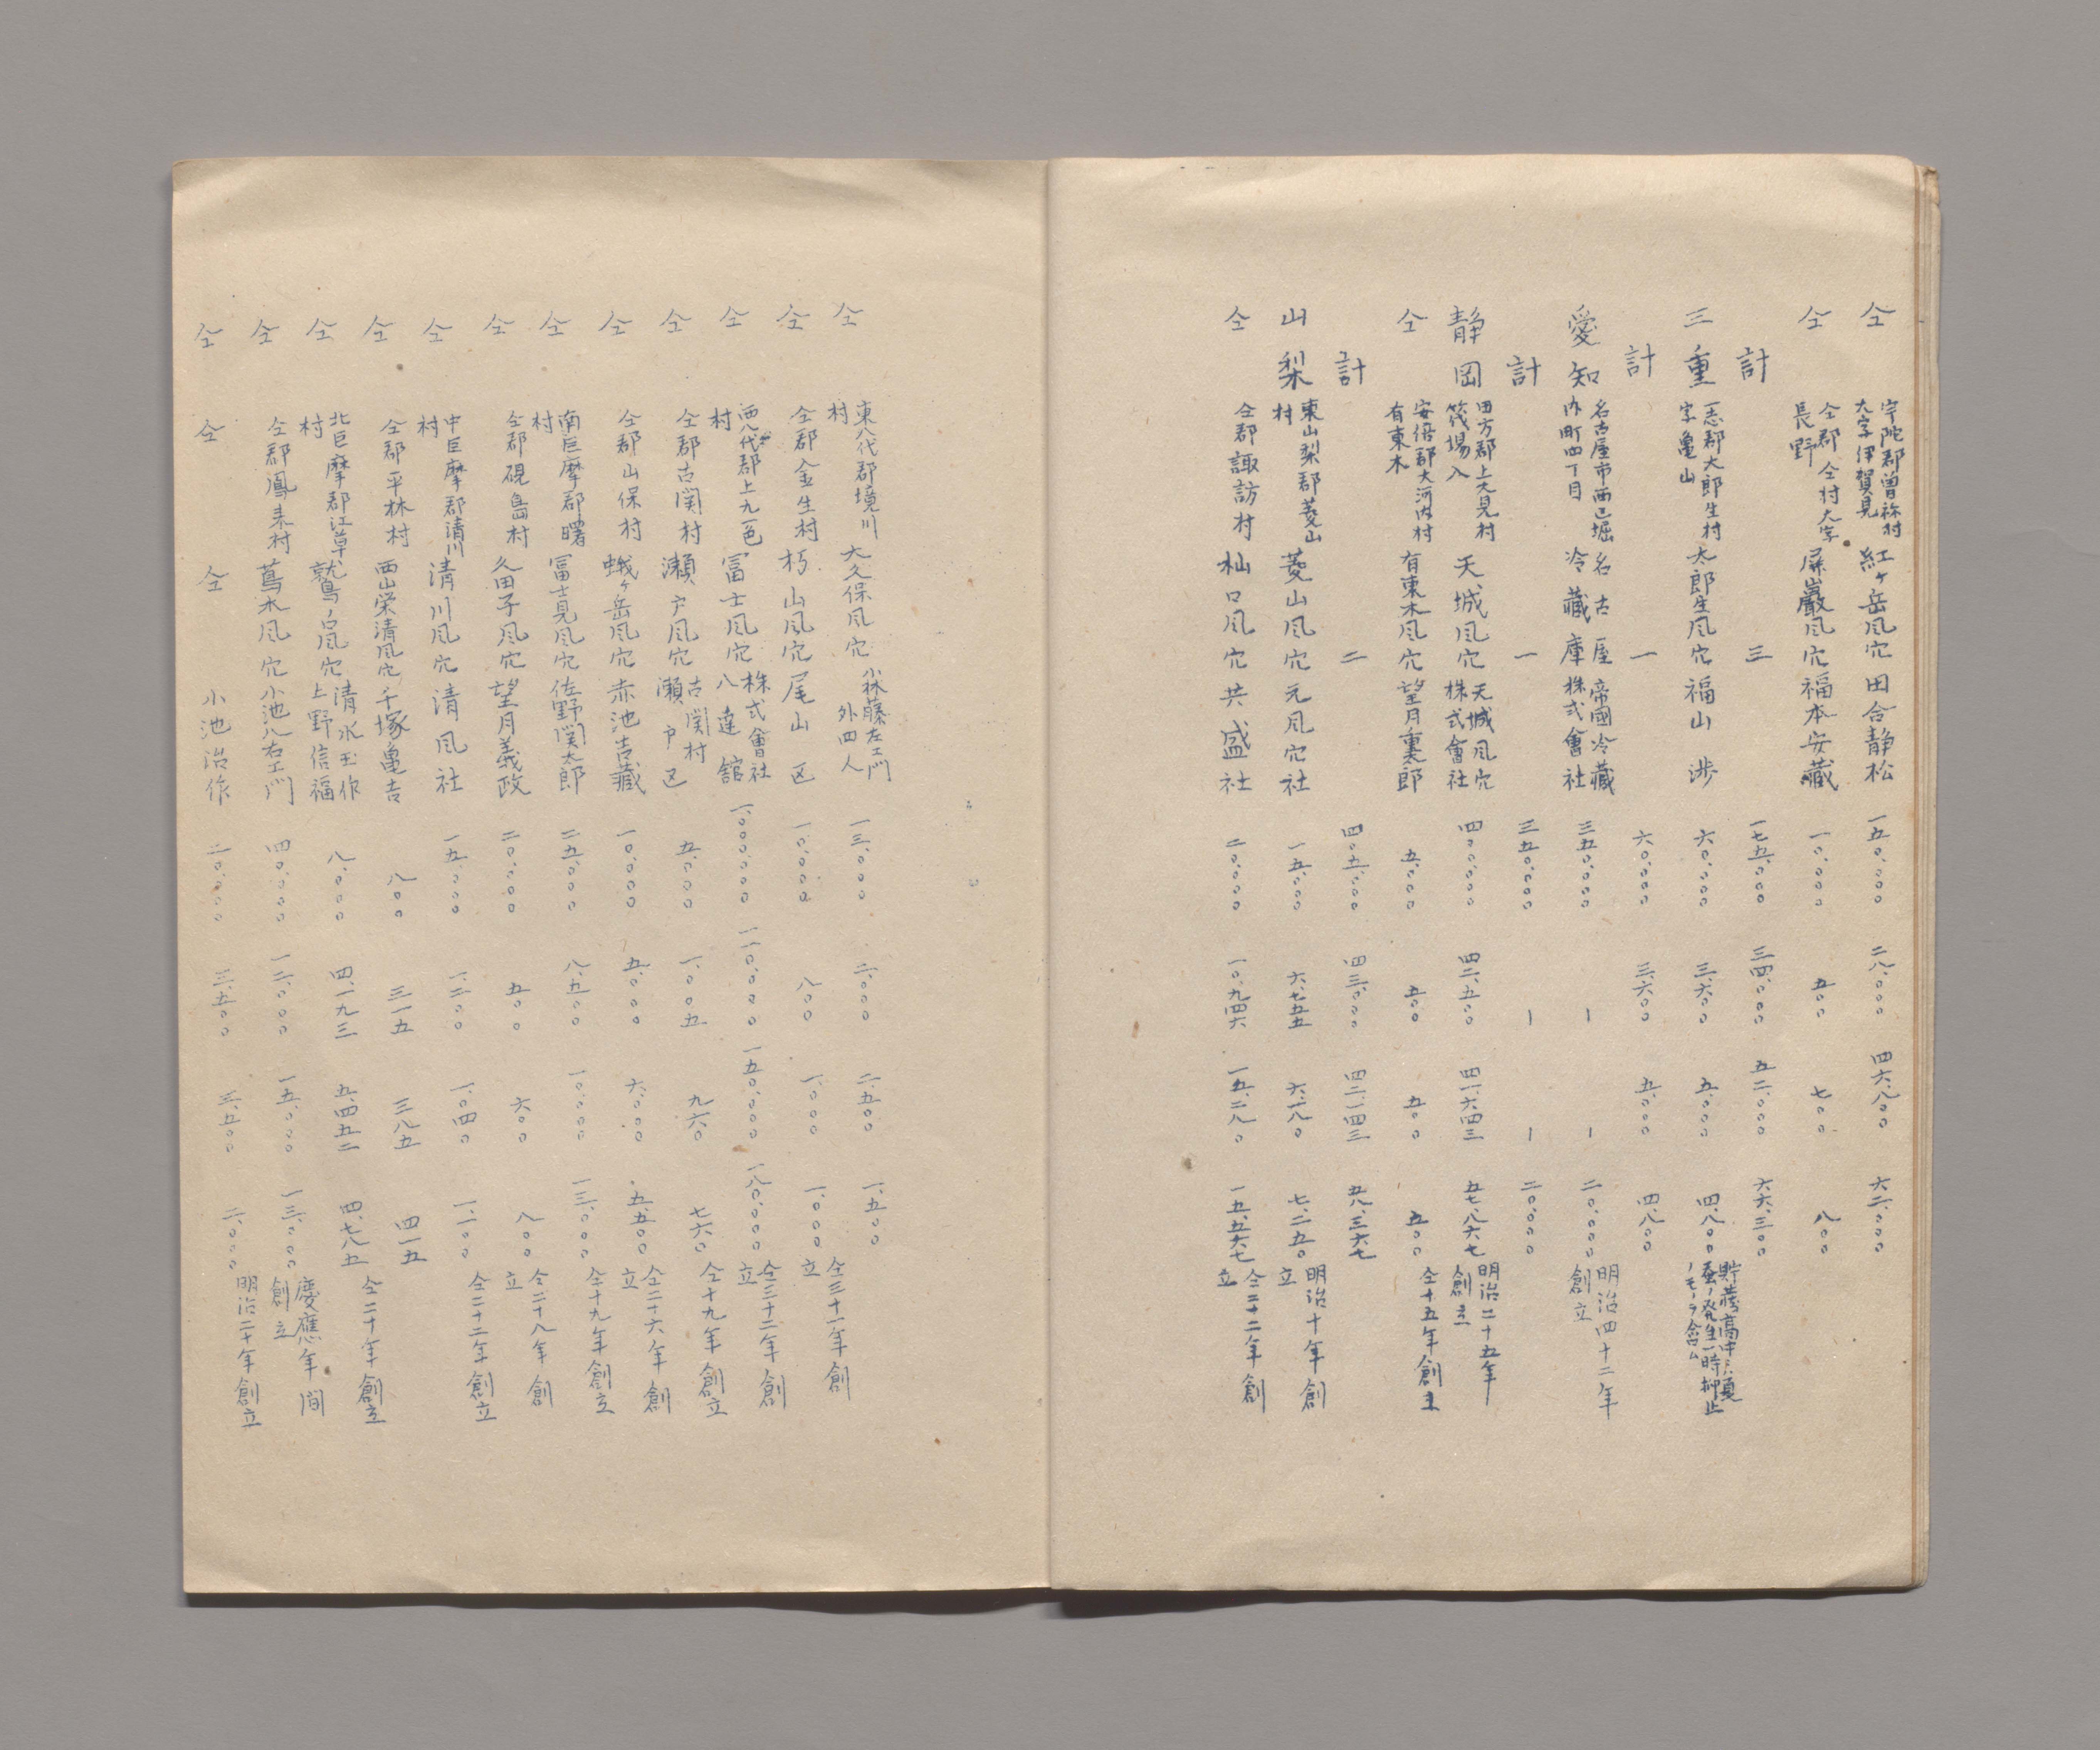 仝 宇陀郡曽祢村大字伊賀見 紅ヶ岳風穴 田合静松 一五〇、〇〇〇 二八、〇〇〇 四六、八〇〇 六二、〇〇〇
仝 仝郡仝村大字長野 屏巖風穴 福本安藏 一〇、〇〇〇 五〇〇 七〇〇 八〇〇
計 三 一七五、〇〇〇 三四、〇〇〇 五二、〇〇〇 六六、三〇〇
三重 一志郡太郎生村字亀山 太郎生風穴 福山渉 六〇、〇〇〇 三、六〇〇 五、〇〇〇 四、八〇〇 貯藏高中ニハ夏蚕ノ発生一時抑止ノモノヲ含ム
計 一 六〇、〇〇〇 三、六〇〇 五、〇〇〇 四、八〇〇
愛知 名古屋市西区堀内町四丁目 名古屋冷藏庫 帝國冷藏株式會社 三五〇、〇〇〇 ー ー 二〇、〇〇〇 明治四十二年創立
計 一 三五〇、〇〇〇 ー ー 二〇、〇〇〇
静岡 田方郡上大見村筏場入 天城風穴 天城風穴株式會社 四〇〇、〇〇〇 四二、五〇〇 四一、六四三 五七、八六七 明治二十五年創立
仝 安倍郡大河内村有東木 有東木風穴 望月重太郎 五、〇〇〇 五〇〇 五〇〇 五〇〇 仝十五年創立
計 二 四〇五、〇〇〇 四三、〇〇〇 四二、一四三 五八、三六七
山梨 東山梨郡菱山村 菱山風穴 元風穴社 一五、〇〇〇 六、七五五 六、一八〇 七、二五〇 明治十年創立
仝 仝郡諏訪村 杣口風穴 共盛社 二〇、〇〇〇 一〇、九四六 一五、二八〇 一五、五六七 仝二十二年創立
仝 東八代郡境川村 大久保風穴 小林藤左エ門外四人 一三、〇〇〇 二、〇〇〇 二、五〇〇 一、五〇〇
仝 仝郡金生村 朽山風穴 尾山区 一〇、〇〇〇 八〇〇 一、〇〇〇 一、〇〇〇 仝三十一年創立
仝 西八代郡上九一色村 冨士風穴 株式會社八達館 一、〇〇〇、〇〇〇 一一〇、〇〇〇 一五〇、〇〇〇 一八〇、〇〇〇 仝三十二年創立
仝 仝郡古関村 瀬戸風穴 古関村瀬戸区 五、〇〇〇 一、〇〇五 九六〇 七六〇 仝十九年創立
仝 仝郡山保村 蛾ヶ岳風穴 赤池吉藏 一〇、〇〇〇 五、〇〇〇 六、〇〇〇 五、五〇〇 仝二十六年創立
仝 南巨摩郡曙村 冨士見風穴 佐野関太郎 二五、〇〇〇 八、五〇〇 一〇、〇〇〇 一三、〇〇〇 仝十九年創立
仝 仝郡硯島村 久田子風穴 望月義政 二〇、〇〇〇 五〇〇 六〇〇 八〇〇 仝二十八年創立
仝 中巨摩郡清川村 清川風穴 清風社 一五、〇〇〇 一、二〇〇 一、〇四〇 一、一〇〇 仝二十二年創立
仝 仝郡平林村 西山栄清風穴 千塚亀吉 八〇〇 三一五 三八五 四一五
仝 北巨摩郡江草村 就鳥ノ口風穴 清水玉作 上野信福 八、〇〇〇 四、一九三 五、四五二 四、七八五 仝二十年創立
仝 仝郡鳳来村 蔦木風穴 小池八右エ門 四〇、〇〇〇 一二、〇〇〇 一五、〇〇〇 一三、〇〇〇 慶應年間創立
仝 仝 仝 小池治作 二〇、〇〇〇 三、五〇〇 三、五〇〇 二、〇〇〇 明治二十年創立